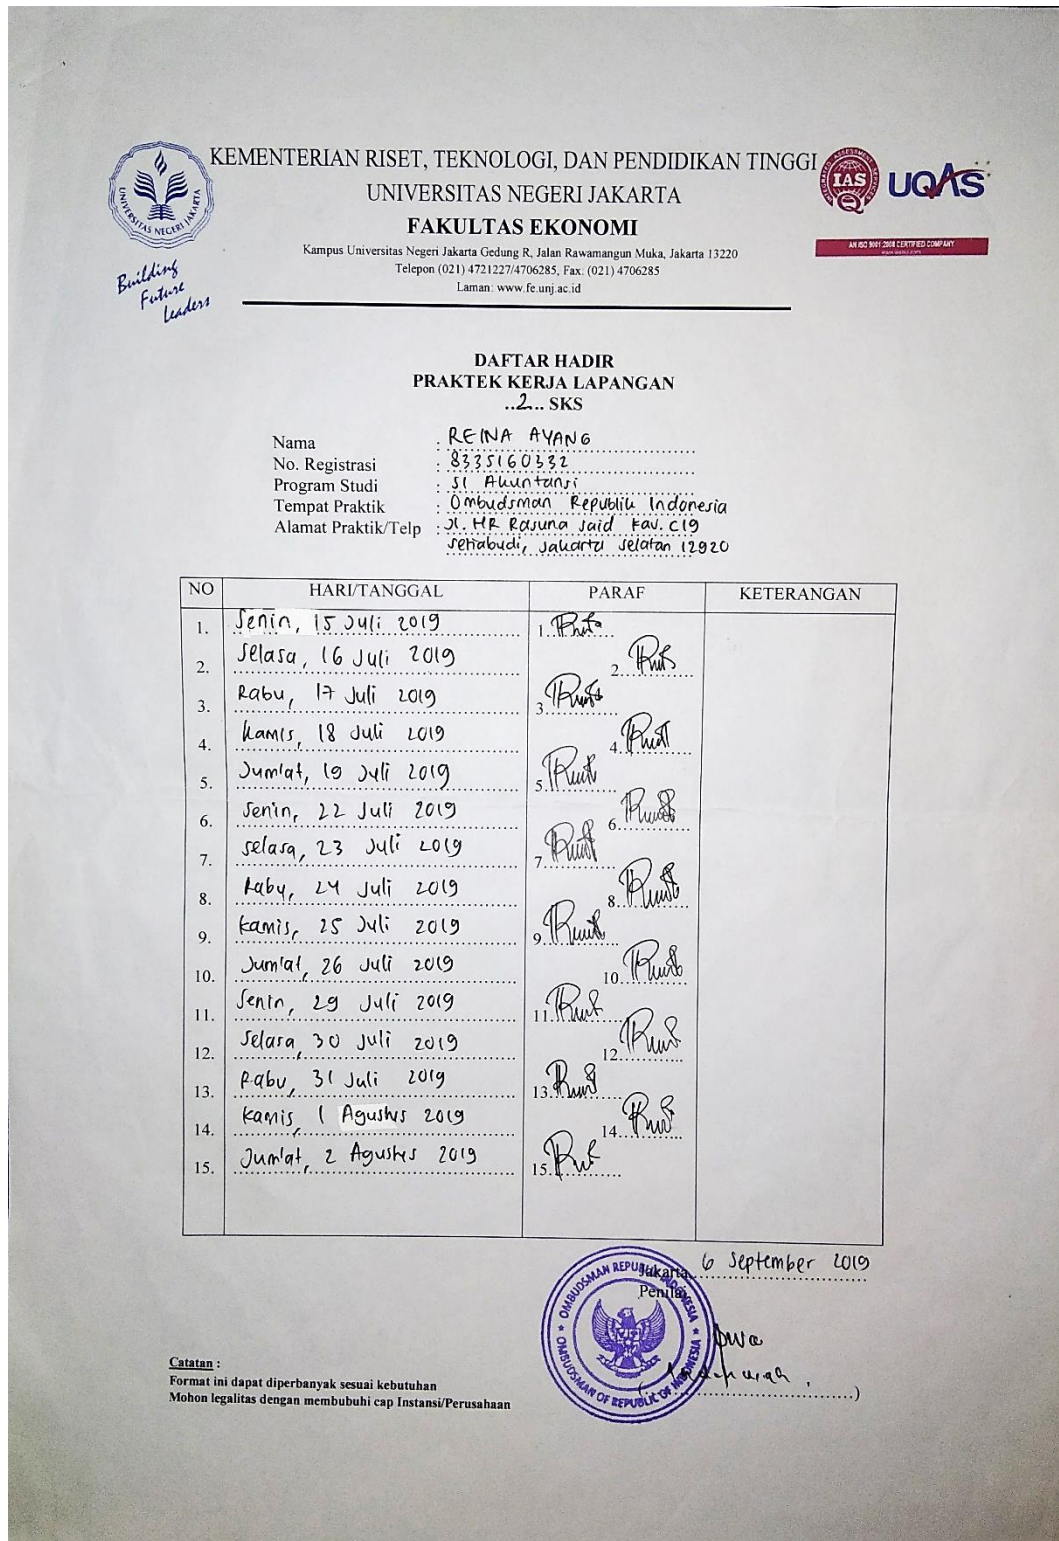 KEMENTERIAN RISET, TEKNOLOGI, DAN PENDIDIKAN TINGGI
UNIVERSITAS NEGERI JAKARTA
FAKULTAS EKONOMI
Kampus Universitas Negeri Jakarta Gedung R, Jalan Rawamangun Muka, Jakarta 13220
Telepon (021) 4721227/4706285, Fax: (021) 4706285
Laman: www.fe.unj.ac.id
UNIVERSITAS NEGERI JAKARTA
Building
Future
Leaders
IAS
UQAS
AN ISO 9001:2008 CERTIFIED COMPANY
DAFTAR HADIR
PRAKTEK KERJA LAPANGAN
..2... SKS
Nama : REINA AYANG
No. Registrasi : 8335160332
Program Studi : S1 Akuntansi
Tempat Praktik : Ombudsman Republik Indonesia
Alamat Praktik/Telp : Jl. HR Rasuna Said Kav. C19
Setiabudi, Jakarta Selatan 12920
NO HARI/TANGGAL PARAF KETERANGAN
1. Senin, 15 Juli 2019 1.
2. Selasa, 16 Juli 2019 2.
3. Rabu, 17 Juli 2019 3.
4. Kamis, 18 Juli 2019 4.
5. Jum'at, 19 Juli 2019 5.
6. Senin, 22 Juli 2019 6.
7. Selasa, 23 Juli 2019 7.
8. Rabu, 24 Juli 2019 8.
9. Kamis, 25 Juli 2019 9.
10. Jum'at, 26 Juli 2019 10.
11. Senin, 29 Juli 2019 11.
12. Selasa, 30 Juli 2019 12.
13. Rabu, 31 Juli 2019 13.
14. Kamis, 1 Agustus 2019 14.
15. Jum'at, 2 Agustus 2019 15.
Jakarta, 6 September 2019
Penilai
OMBUDSMAN REPUBLIK INDONESIA
OMBUDSMAN OF REPUBLIC OF INDONESIA
Catatan :
Format ini dapat diperbanyak sesuai kebutuhan
Mohon legalitas dengan membubuhi cap Instansi/Perusahaan